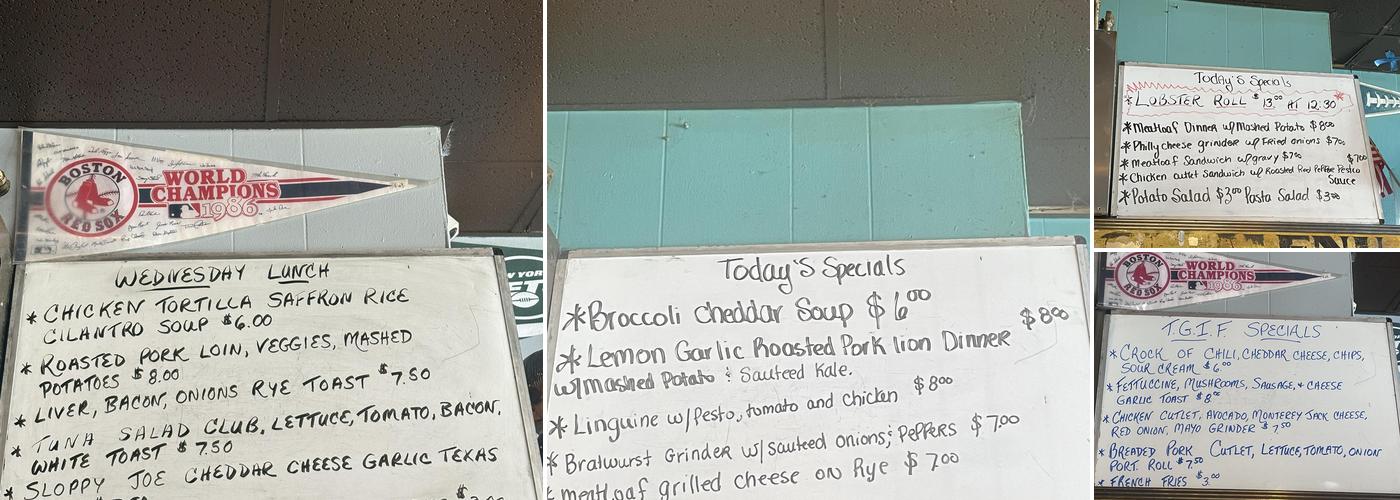 BOSTON
RED SOX
WORLD
CHAMPIONS
1986
WEDNESDAY LUNCH
* CHICKEN TORTILLA SAFFRON RICE
CILANTRO SOUP $6.00
* ROASTED PORK LOIN, VEGGIES, MASHED
POTATOES $8.00
* LIVER, BACON, ONIONS RYE TOAST $7.50
* TUNA SALAD CLUB, LETTUCE, TOMATO, BACON,
WHITE TOAST $7.50
* SLOPPY JOE CHEDDAR CHEESE GARLIC TEXAS
Today's Specials
*Broccoli cheddar Soup $6.00
*Lemon Garlic Roasted Pork lion Dinner $8.00
w/mashed Potato & Sauteed Kale.
*Linguine w/Pesto, tomato and chicken $8.00
*Bratwurst Grinder w/ sauteed onions & Peppers $7.00
*meatloaf grilled cheese on Rye $7.00
Today's Specials
*LOBSTER ROLL $13.00 AT 12:30*
*Meatloaf Dinner w/Mashed Potato $8.00
*Philly cheese grinder w/ Fried onions $7.00
*Meatloaf Sandwich w/gravy $7.00
*Chicken cutlet Sandwich w/ Roasted Red Pepper Pesto $7.00
Sauce
*Potato Salad $3.00 Pasta Salad $3.00
BOSTON
RED SOX
WORLD
CHAMPIONS
1986
T.G.I.F. SPECIALS
* CROCK OF CHILI, CHEDDAR CHEESE, CHIPS,
SOUR CREAM $6.00
* FETTUCCINE, MUSHROOMS, SAUSAGE, + CHEESE
GARLIC TOAST $8.00
* CHICKEN CUTLET, AVOCADO, MONTEREY JACK CHEESE,
RED ONION, MAYO GRINDER $7.50
* BREADED PORK CUTLET, LETTUCE, TOMATO, ONION
PORT. ROLL $7.50
* FRENCH FRIES $3.00